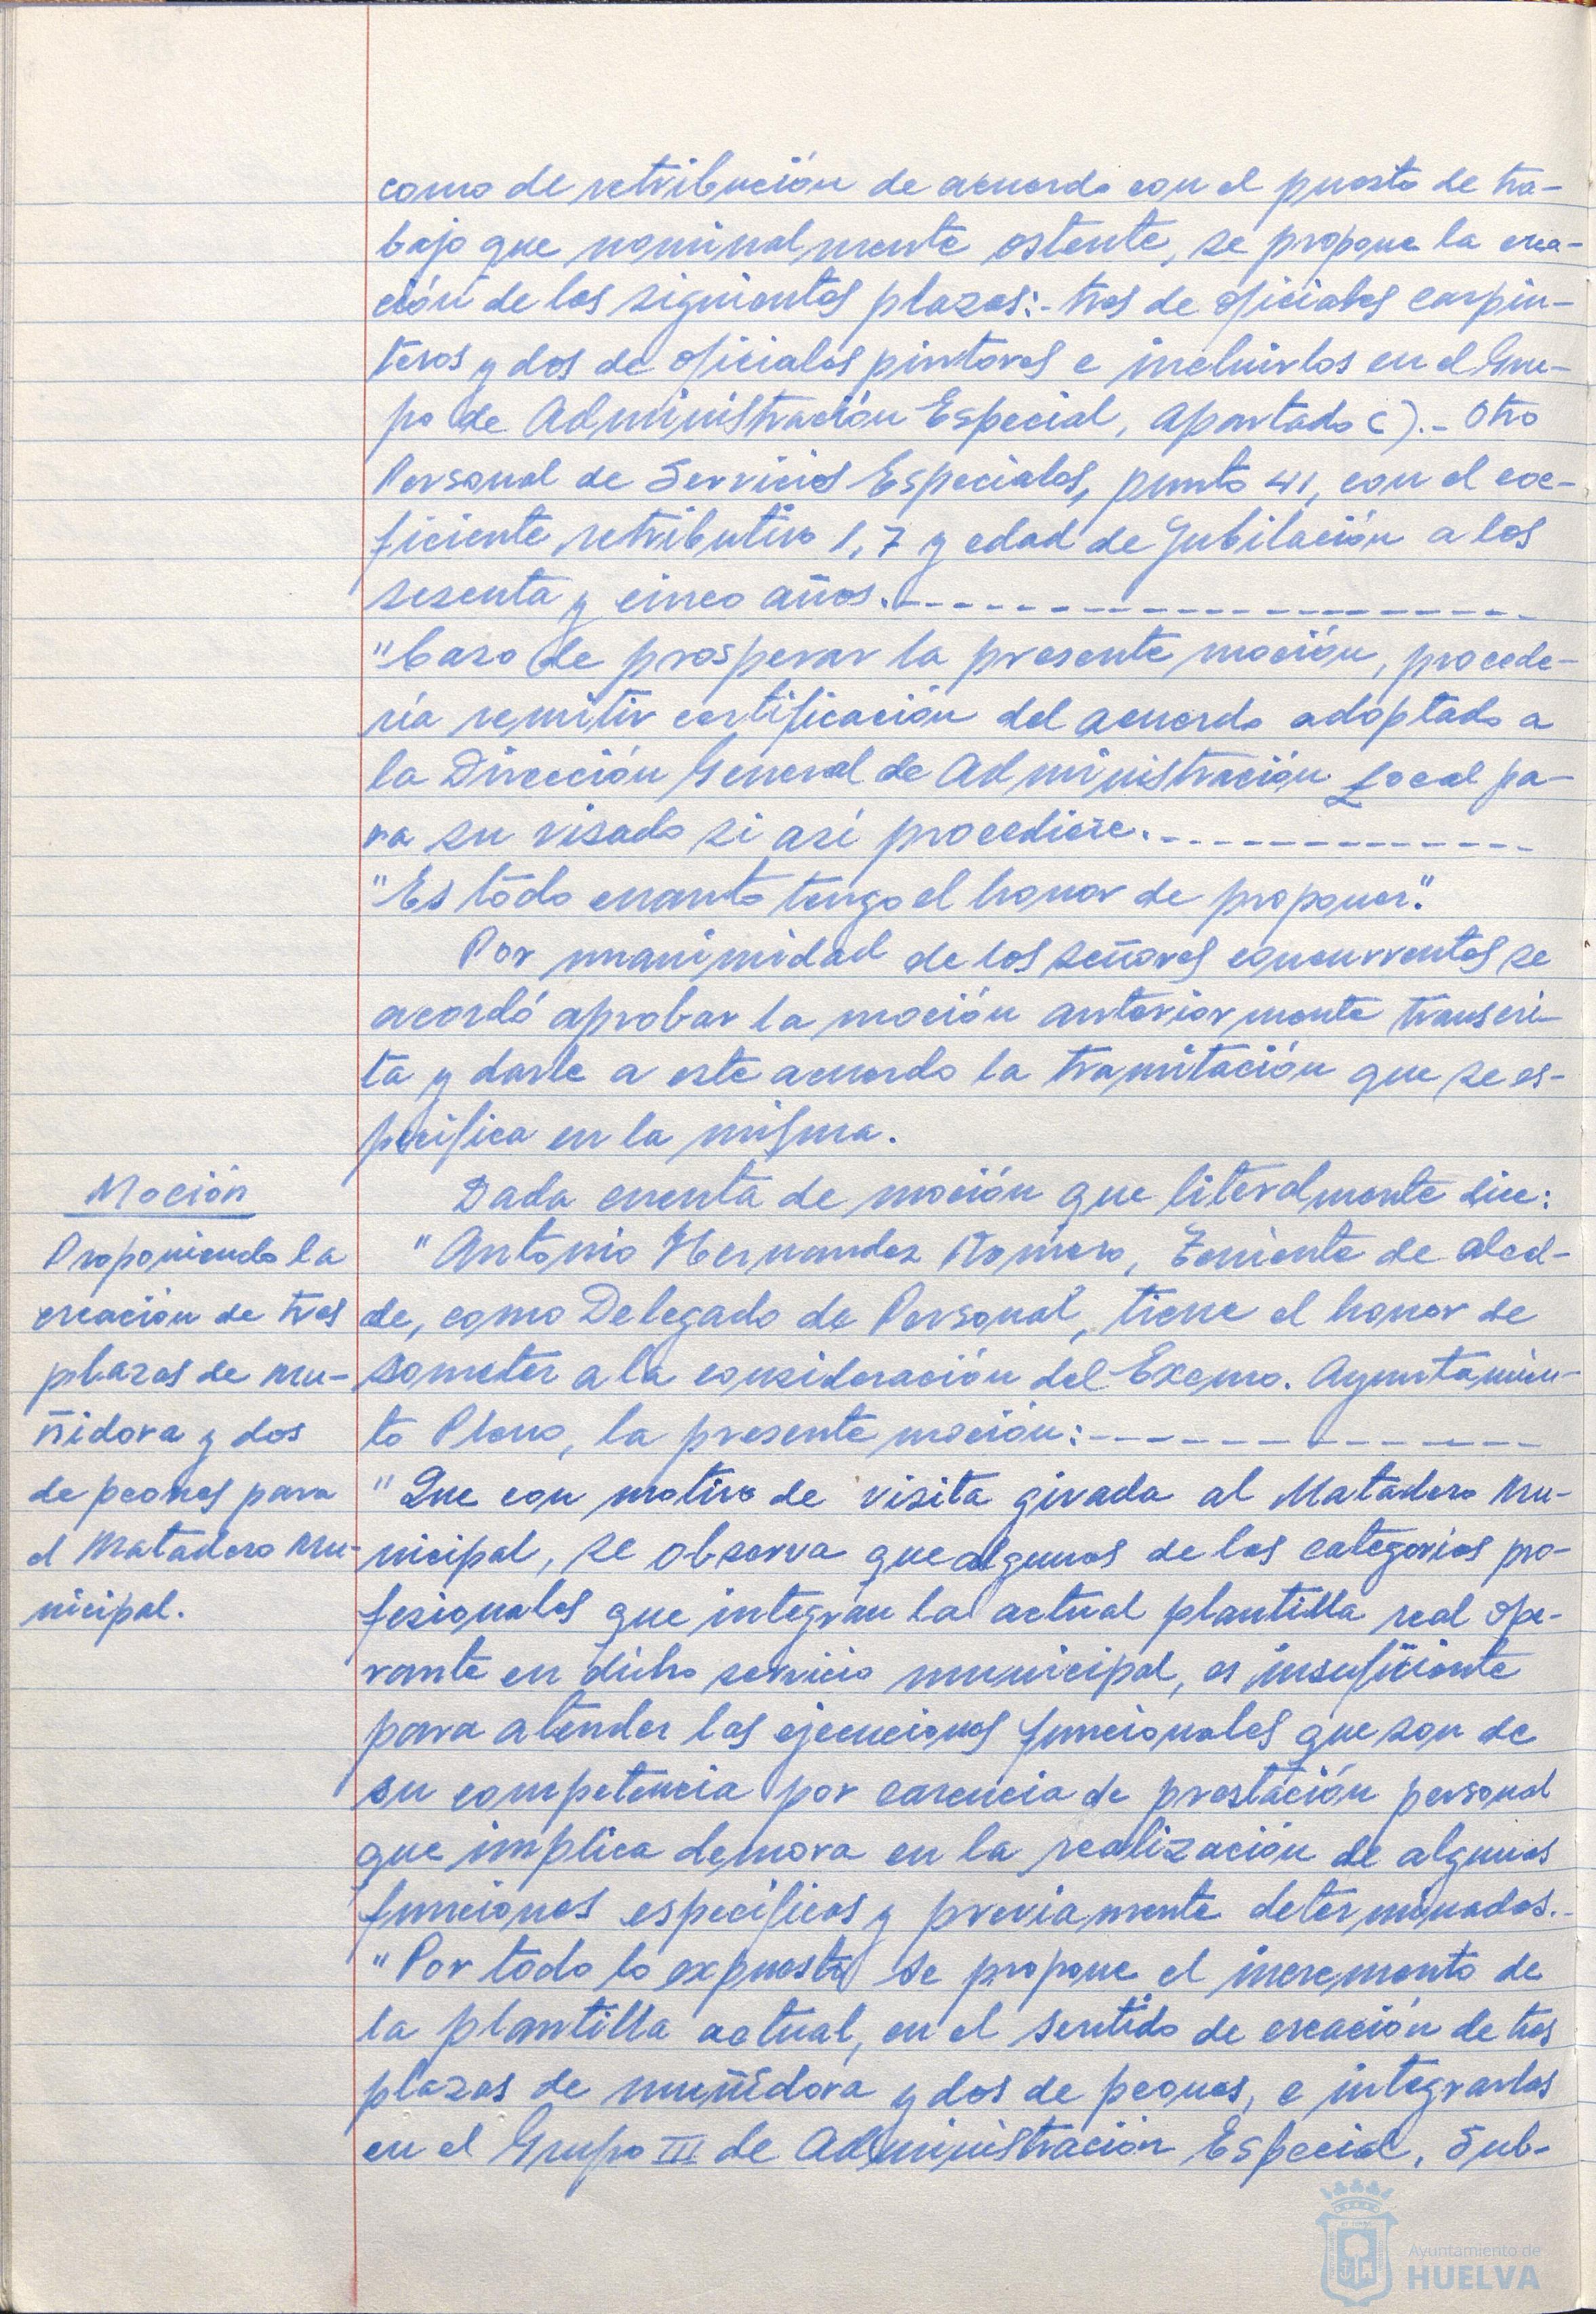 como de retribución de acuerdo con el puesto de tra-
bajo que nominalmente ostente, se propone la crea-
ción de las siguientes plazas:- tres de oficiales carpin-
teros y dos de oficiales pintores e incluirlos en el Gru-
po de Administración Especial, apartado C).- Otro
Personal de Servicios Especiales, punto 41, con el coe-
ficiente retributivo 1,7 y edad de jubilación a los
sesenta y cinco años.-------------------
"Caso de prosperar la presente moción, procede-
ría remitir certificación del acuerdo adoptado a
la Dirección General de Administración Local pa-
ra su visado si así procediere.-------------
"Es todo cuanto tengo el honor de proponer."
Por unanimidad de los señores concurrentes se
acordó aprobar la moción anteriormente transcri-
ta y darle a este acuerdo la tramitación que se es-
pecifica en la misma.
Moción
Proponiendo la
creación de tres
plazas de mu-
ñidora y dos
de peones para
el Matadero Mu-
nicipal.
Dada cuenta de moción que literalmente dice:
"Antonio Hernandez Romero, Teniente de Alcal-
de, como Delegado de Personal, tiene el honor de
someter a la consideración del Excmo. Ayuntamien-
to Pleno, la presente moción:-------------
"Que con motivo de visita girada al Matadero Mu-
nicipal, se observa que algunas de las categorías pro-
fesionales que integran la actual plantilla real ope-
rante en dicho servicio municipal, es insuficiente
para atender las ejecuciones funcionales que son de
su competencia por carencia de prestación personal
que implica demora en la realización de algunas
funciones específicas y previamente determinadas.-
"Por todo lo expuesto se propone el incremento de
la plantilla actual, en el sentido de creación de tres
plazas de muñidora y dos de peones, e integrarlas
en el Grupo III de Administración Especial, Sub-
Ayuntamiento de
HUELVA